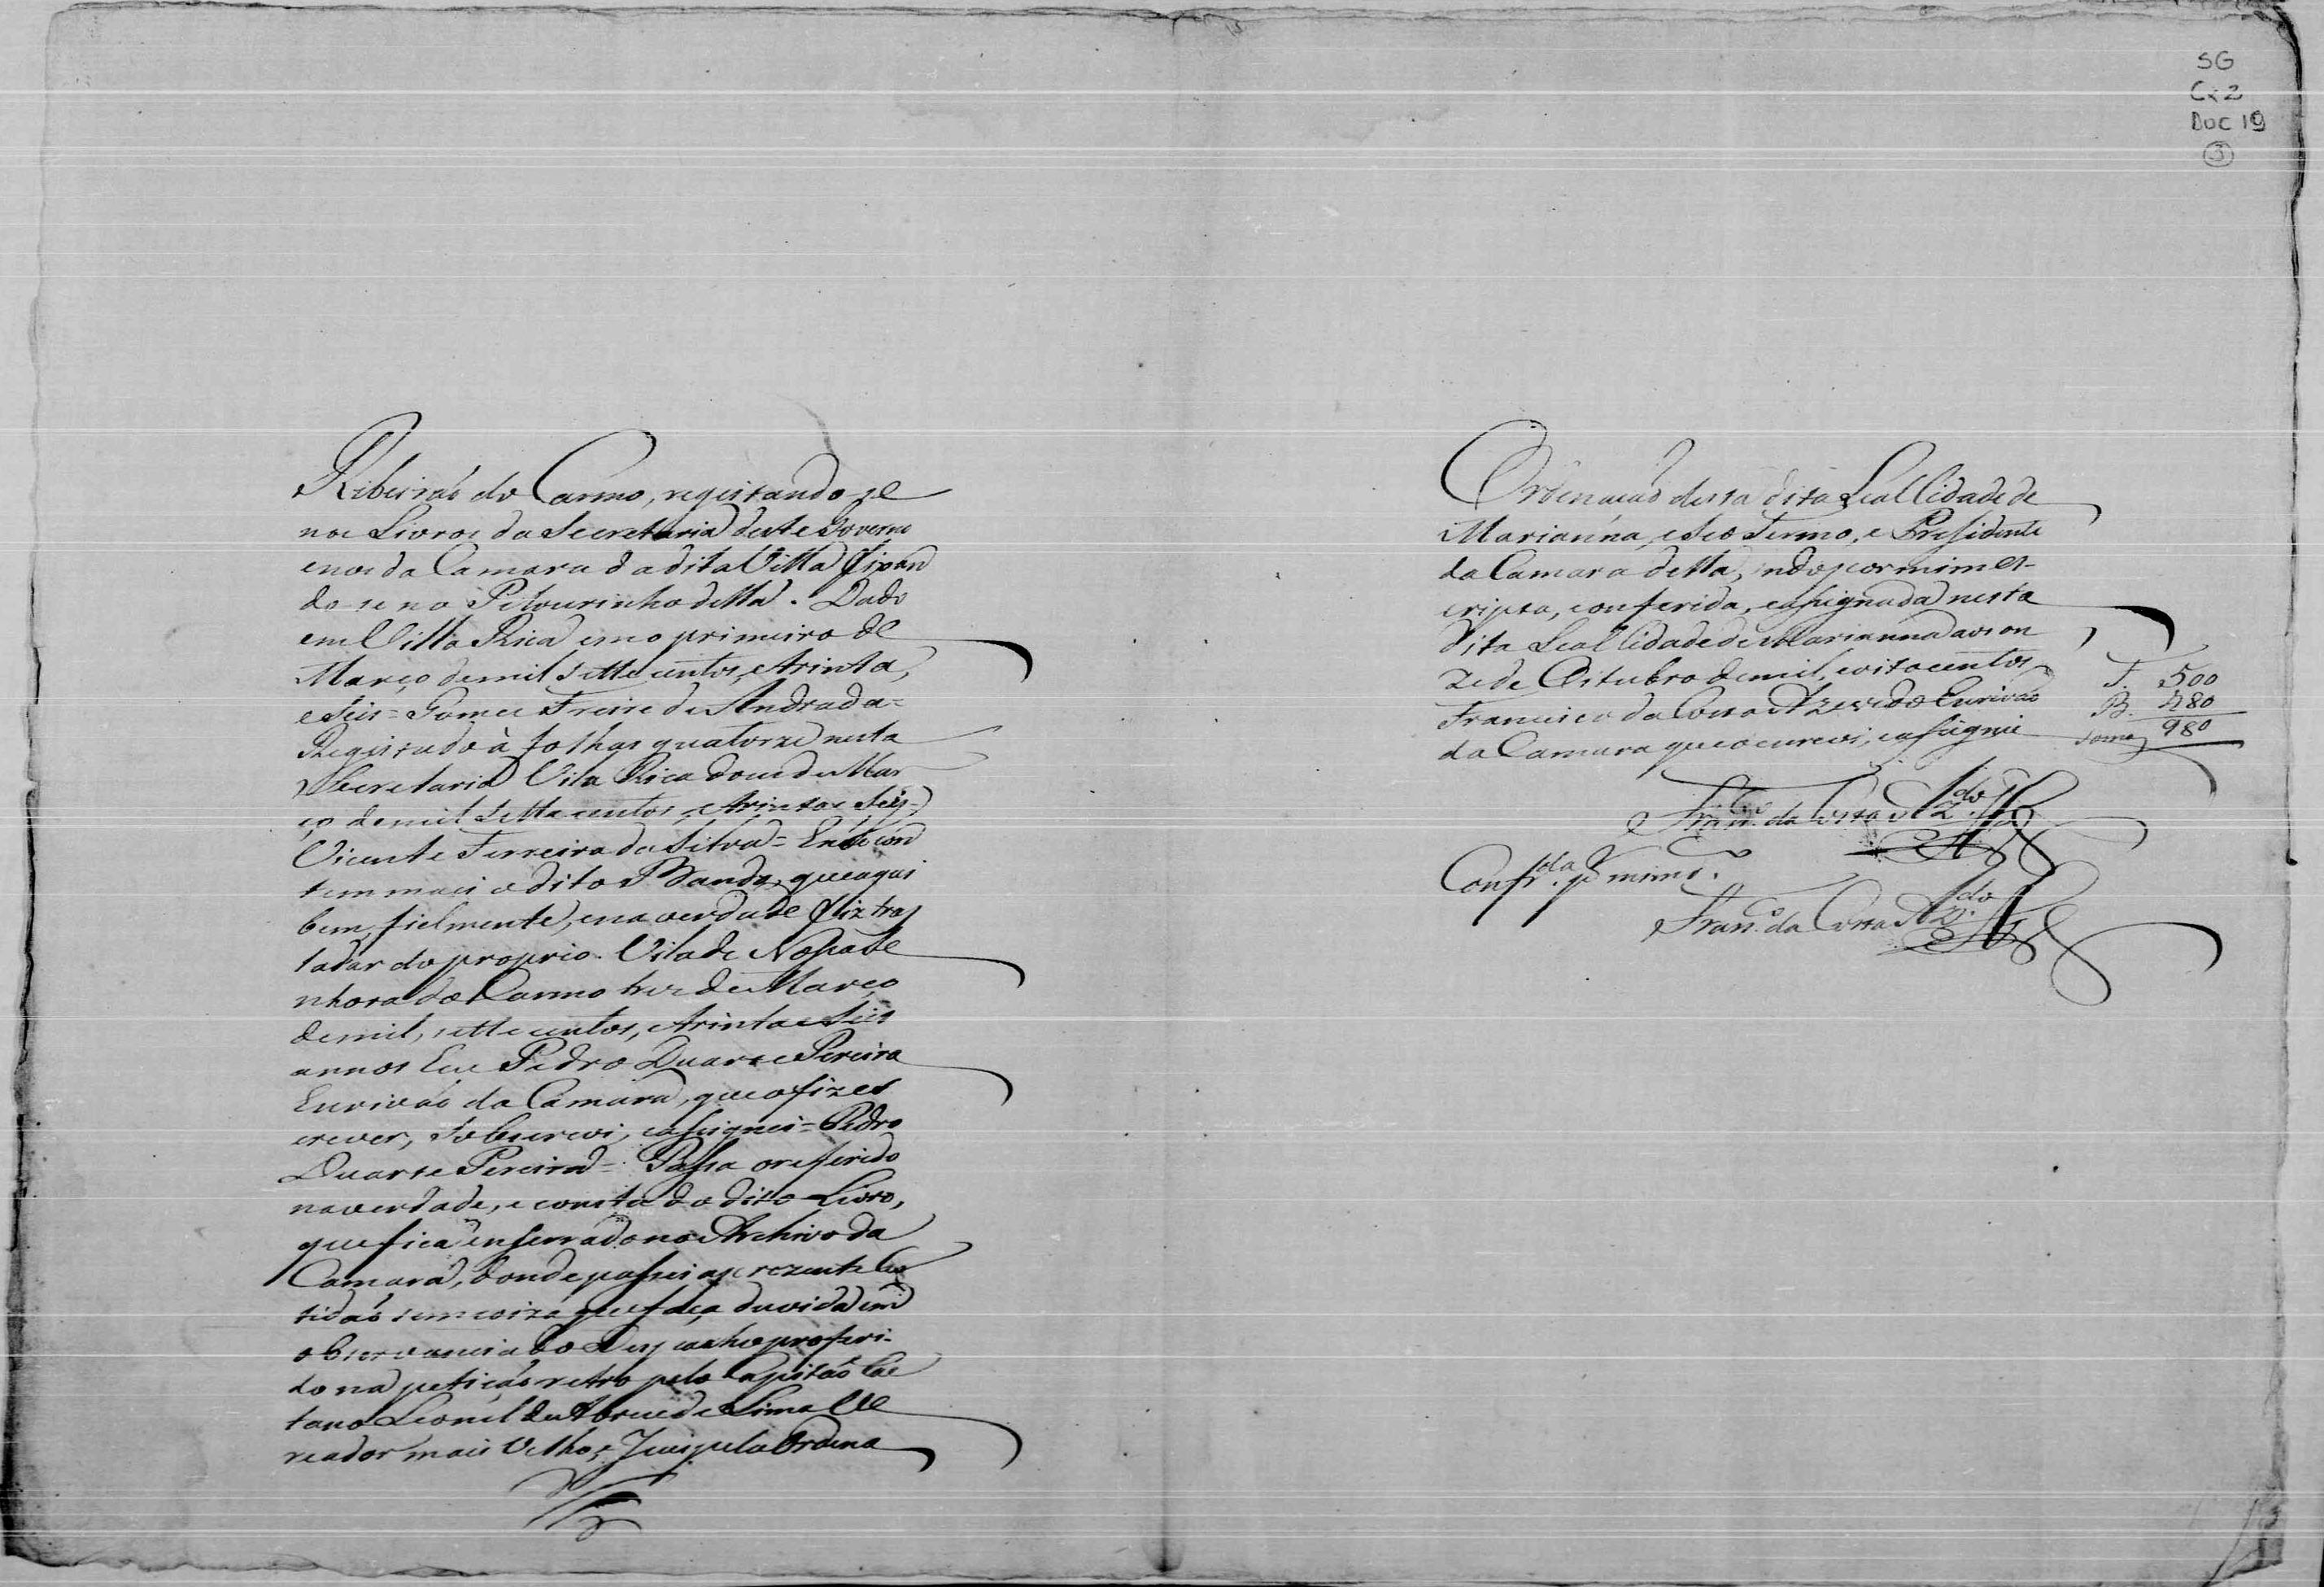 SG
Cx 2
DOC 19
3
Ribeiraõ do Carmo, registando-se
nos Livros da Secretaria deste Governo
e nos da Camara da dita Villa fixan
do-se no Pelourinho della. Dado
em Villa Rica em o primeiro de
Março de mil sette centos, e trinta,
e seis = Gomes Freire de Andrada =
Registado à folhas quatorze nesta
Secretaria Vila Rica dous de Mar
ço de mil sette centos, e trinta e seis =
Vicente Ferreira da Silva = E naõ con
tem mais o dito Bando, que aqui
bem, fielmente, e na verdade fiz tras
ladar do proprio. Vila de Nossa Se
nhora do Carmo tres de Março
de mil, sette centos, e trinta e seis
annos Eu Pedro Duarte Pereira
Escrivaõ da Camara, que o fiz es
crever, sobescrevi, e assignei = Pedro
Duarte Pereira = Passa o referido
na verdade, e consta do dito Livro,
que fica enserrado no Archivo da
Camara, donde passei a prezente Cer
tidaõ sem coiza que faça duvida em
observancia do Despacho proferi-
do na petiçaõ retro pelo Capitaõ Cae
tano Leonel de Abreu de Lima Ve
reador mais Velho, e Juis pela Ordena
Ordenaçaõ desta dita Leal Cidade de
Marianna, e seo Termo, e Presidente
da Camara della, indo por mim es-
cripta, conferida, e assignada nesta
dita Leal Cidade de Marianna aos on
ze de Oitubro de mil, e oitocentos
Francisco da Costa Azevedo Escrivaõ
da Camara que o escrevi, e assignei
T. 500
B. 480
Soma 980
Fran.co da Costa Az.do
Confr.da p mim.
Fran.co da Costa Az.do